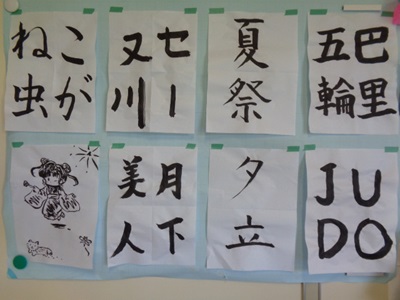 こが
ね虫
セー
ヌ川
夏祭
巴里
五輪
月下
美人
夕立
JU
DO